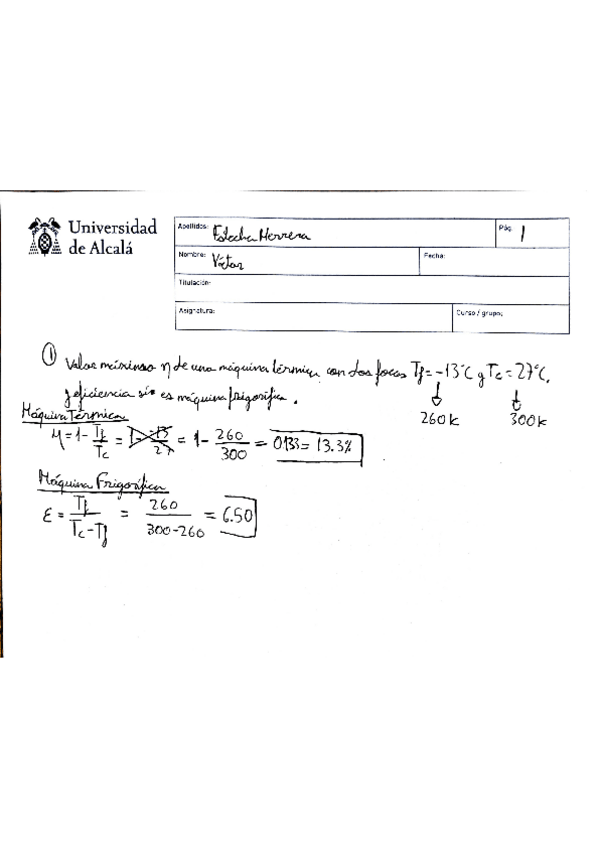 Universidad
de Alcalá
Apellidos: Herrera
Pág. 1
Nombre: Víctor
Fecha:
Titulación:
Asignatura:
Curso / grupo:
① Valor máximo η de una máquina térmica con dos focos Tf = -13°C y Tc = 27°C.
y eficiencia si es máquina frigorífica.
260 k 300 k
Máquina Térmica
η = 1 - Tf/Tc = 1 - -13/27 = 1 - 260/300 = 0133 = 13.3%
Máquina Frigorífica
ε = Tf/(Tc - Tf) = 260/(300-260) = 6.50